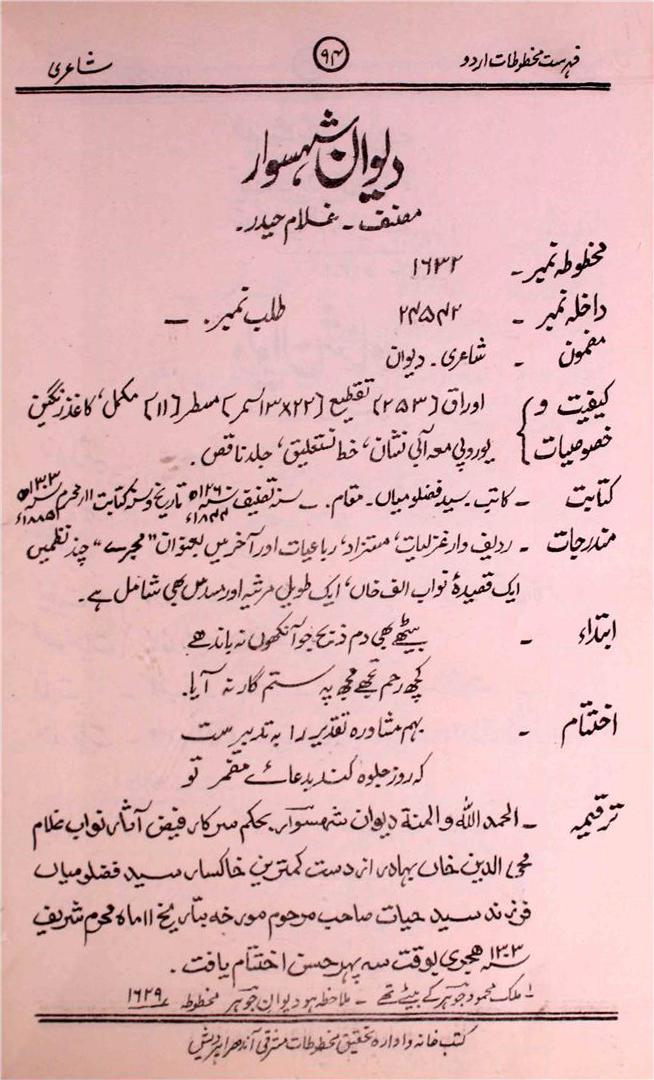 فہرست مخطوطات اردو ۹۴ شاعری
دیوان شہسوار
مصنف ۔ غلام حیدر۔
مخطوطہ نمبر ۔ ۱۶۳۲
داخلہ نمبر ۔ ۲۴۵۴۲ طلب نمبر ۔ —
مضمون ۔ شاعری ۔ دیوان
کیفیت و خصوصیات } اوراق (۲۵۳) تقطیع (۲۲×۱۳سمر) سطر (۱۱) مکمل، کاغذ رنگین
یوروپی معہ آبی نشان، خط نستعلیق، جلد ناقص ۔
کتابت ۔ کاتب ۔ سید فضلو میاں ۔ مقام ۔ — سنہ تصنیف ۱۲۶۰ھ ۱۸۴۴ء تاریخ و سنہ کتابت ۱۱ محرم ۱۳۰۳ھ ۱۸۸۵ء
مندرجات ۔ ردیف وار غزلیات، مستزاد، رباعیات اور آخر میں بعنوان "مجرے" چند نظمیں
ایک قصیدۂ نواب الف خاں، ایک طویل مرثیہ اور مسدس بھی شامل ہے۔
ابتداء ۔ بیٹھے بھی دم ذبح جو آنکھوں نہ باندھے
کچھ رحم تجھے مجھ پہ ستم گار نہ آیا۔
اختتام ۔ بہم مشاورہ تقدیر را بہ تدبیر ست
کہ روز جلوہ کند مدعائے مضمر تو
ترقیمہ ۔ الحمد اللہ والمنۃ دیوان شہسوار بحکم سرکار فیض آثار نواب غلام
محی الدین خاں بہادر از دست کمترین خاکسار سید فضلو میاں
فرزند سید حیات صاحب مرحوم مورخہ بتاریخ ۱۱ ماہ محرم شریف
۱۳۰۳ سنہ ھجری بوقت سہ پہر حسن اختتام یافت ۔
۱ ملک محمود جوہر کے بیٹے تھے ۔ ملاحظہ ہو دیوان جوہر مخطوطہ ۱۶۲۹
کتب خانہ و ادارہ تحقیق مخطوطات مشرقی آندھرا پردیش